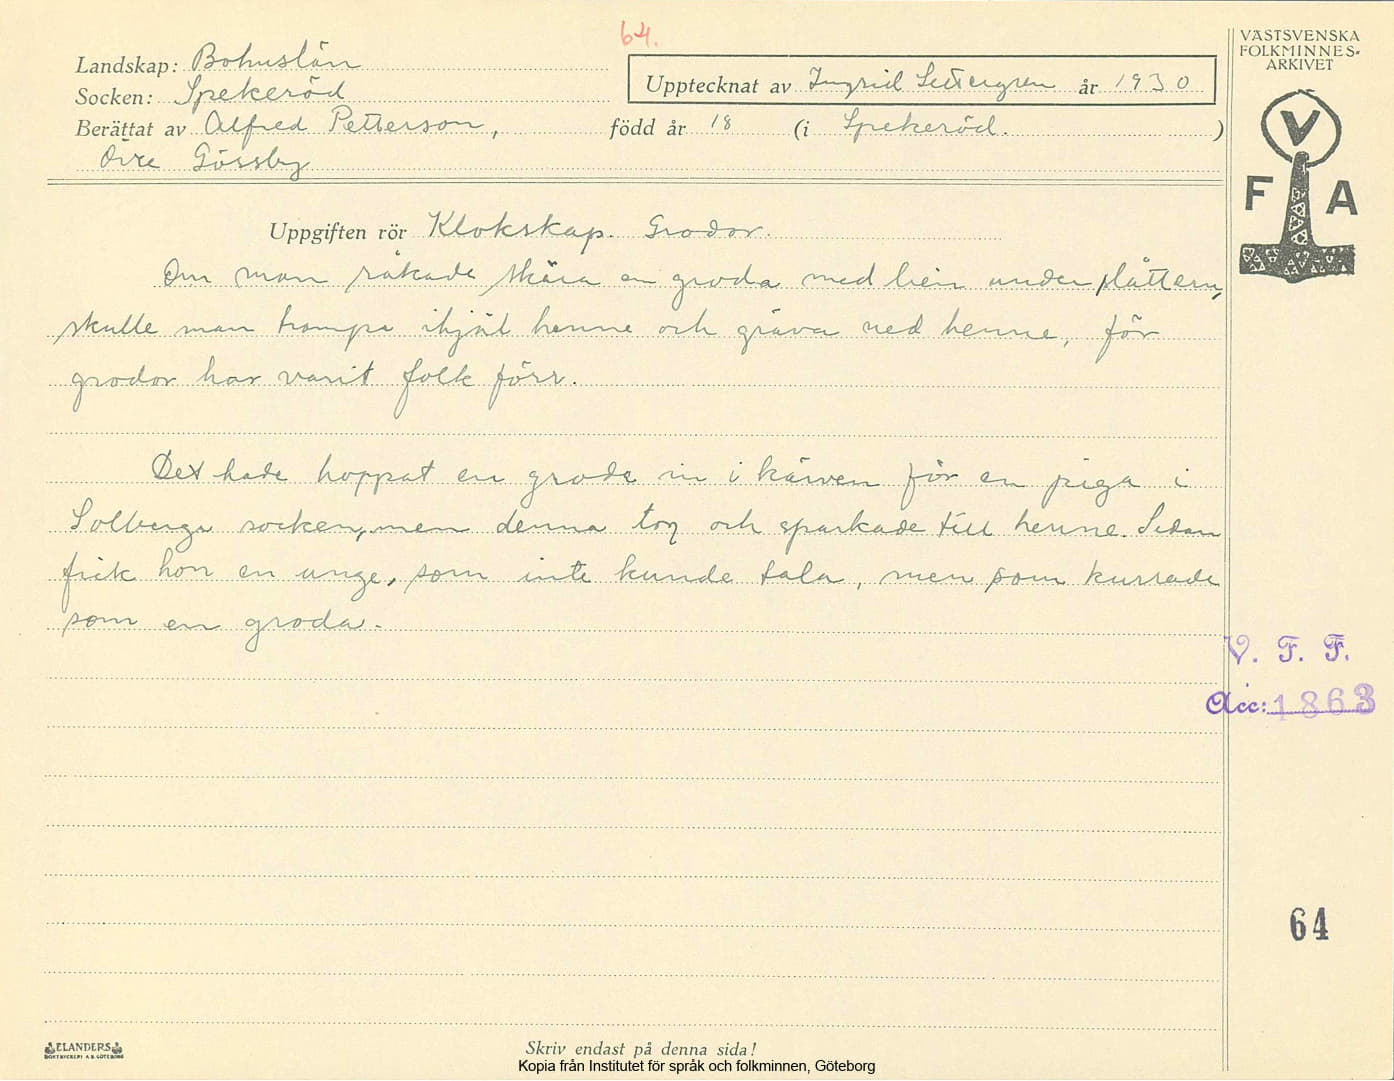 64.
Landskap: Bohuslän
Socken: Spekeröd
Upptecknat av Ingrid Settergren år 1930
Berättat av Alfred Petterson, född år 18 (i Spekeröd. )
Övre Gössby
VÄSTSVENSKA
FOLKMINNES-
ARKIVET
V
F A
Uppgiften rör Klokskap. Grodor.
Om man råkade skära en groda med lien under slåttern,
skulle man trampa ihjäl henne och gräva ned henne, för
grodor har varit folk förr.
Det hade hoppat en groda in i kärven för en piga i
Solberga socken, men denna tog och sparkade till henne. Sedan
fick hon en unge, som inte kunde tala, men som kurrade
som en groda.
V. F. F.
Acc: 1863
64
ELANDERS
BOKTRYCKERI A.B. GÖTEBORG
Skriv endast på denna sida!
Kopia från Institutet för språk och folkminnen, Göteborg